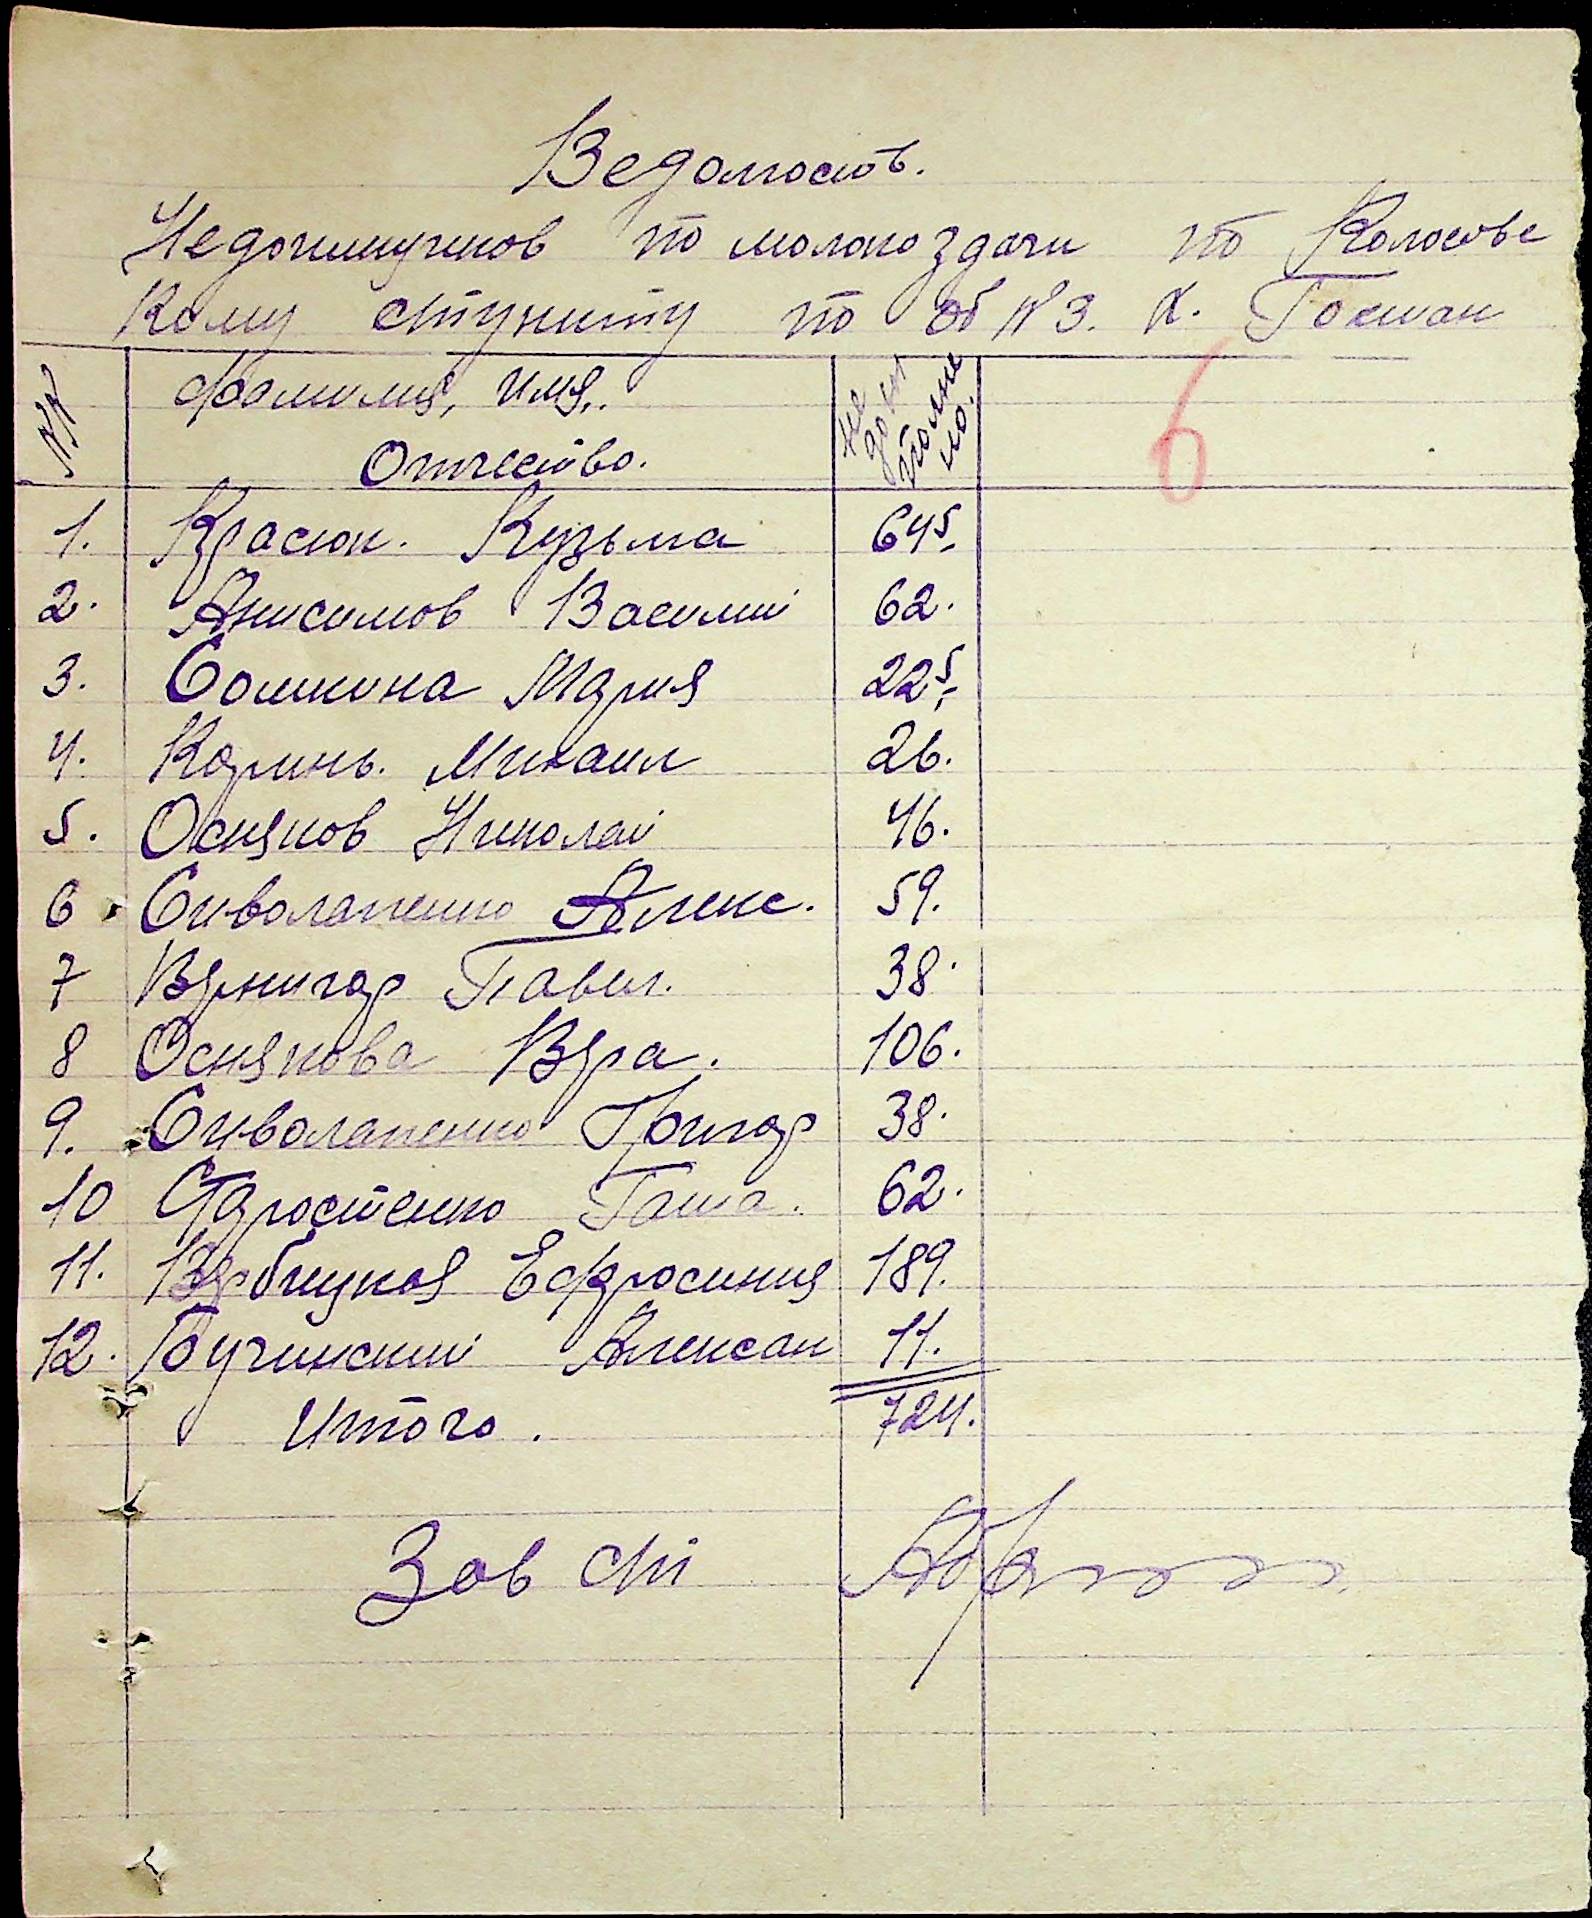 Ведомость.
Недоимщиков по молокоздачи по Колосовс
кому стпункту по Об № 3. К. Госман
№№ Фамилия, имя, Отчество. не доим полне но.
1. Красюк. Кузьма 64⁵.
2. Анисимов Василий 62.
3. Сошкина Мария 22⁵.
4. Каринь. Михаил 26.
5. Осняков Николай 46.
6 Сиволапенко Алекс. 59.
7 Вернигор Павел. 38.
8 Оснякова Вера. 106.
9. Сиволапенко Григор 38.
10 Старостенко Гаша. 62.
11. Вербицкая Ефросиния 189.
12. Бучинский Алексан 11.
Итого. 724.
Зав стп
6